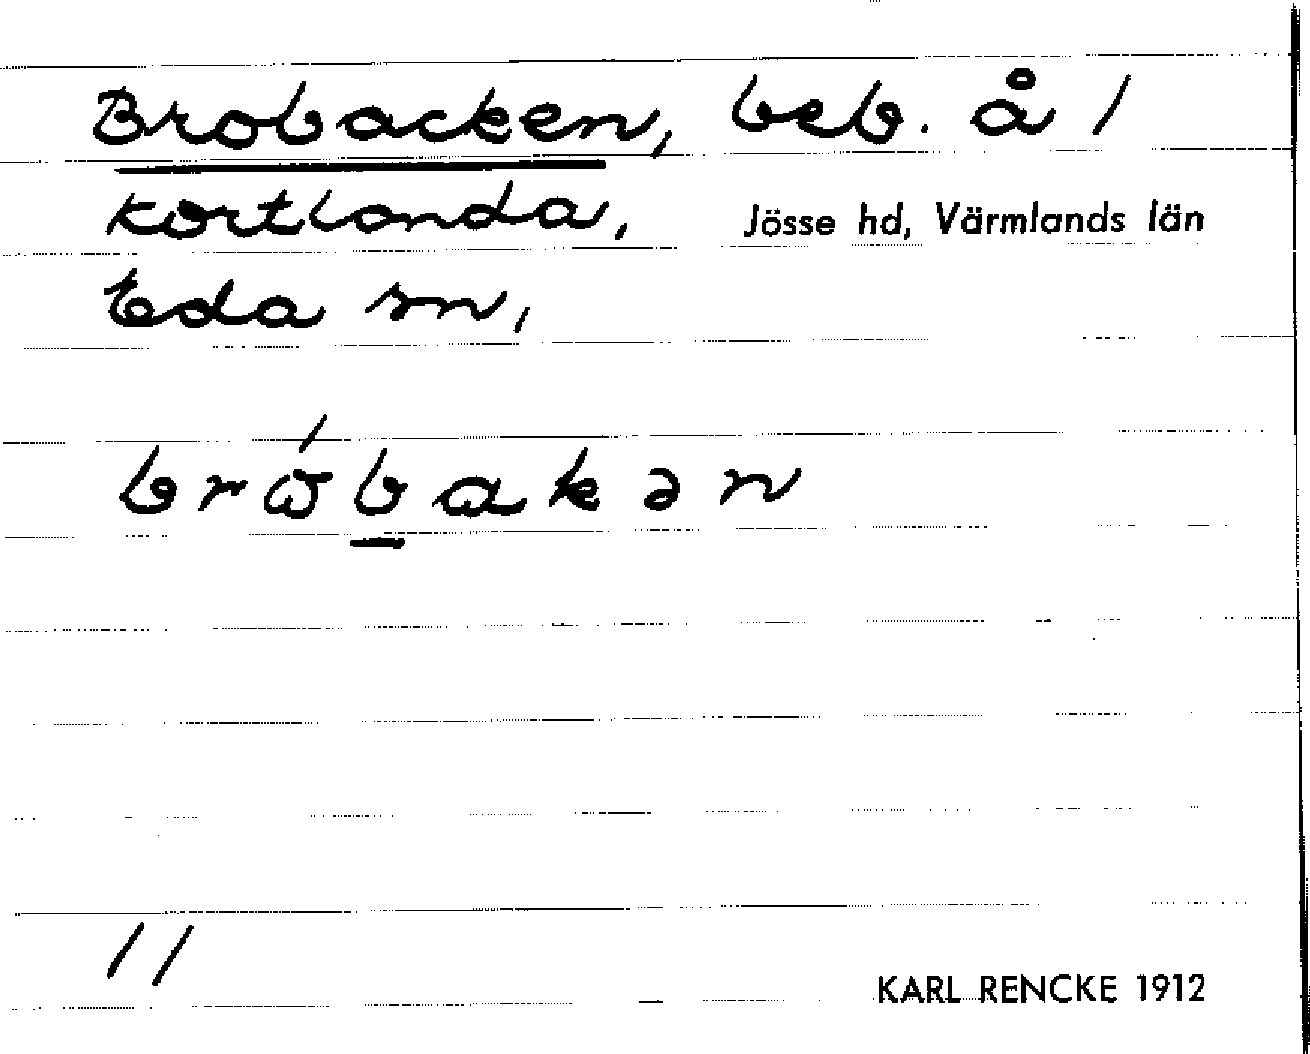 Brobacken, beb. å /
Kortlanda,
Jösse hd, Värmlands län
Eda sn,
brω´bakən
11
KARL RENCKE 1912